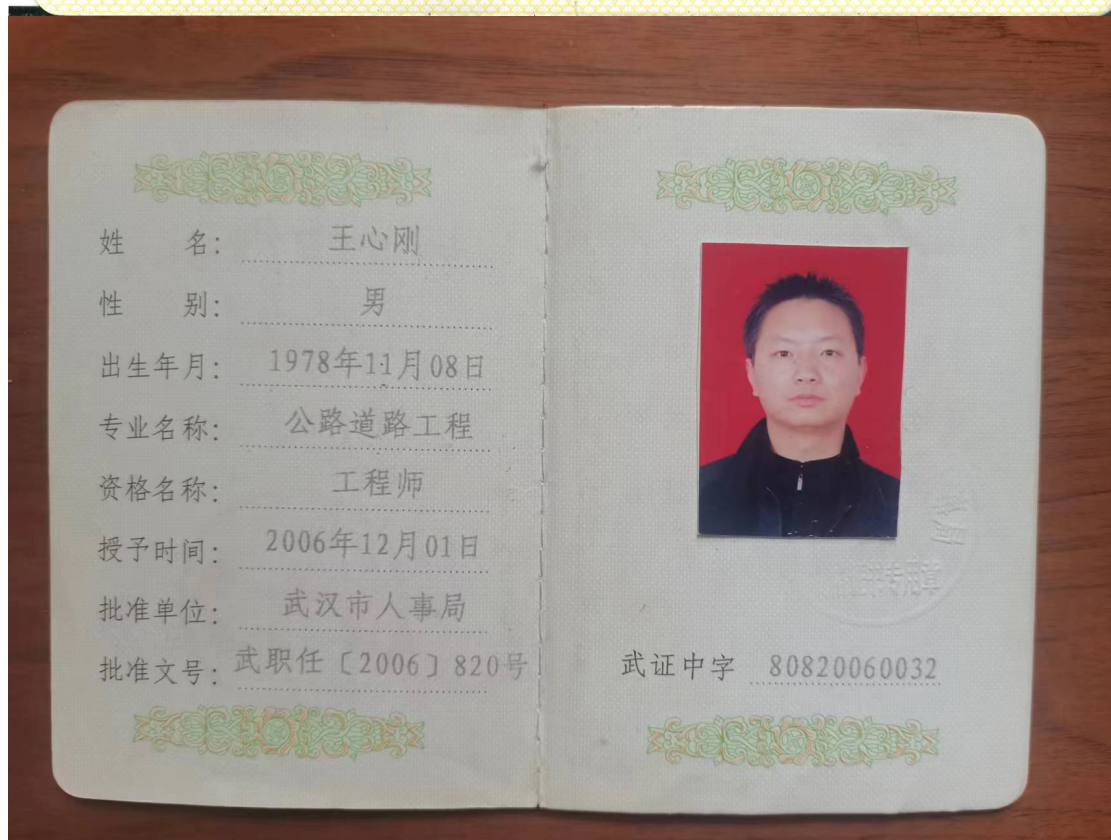 姓 名: 王心刚
性 别: 男
出生年月: 1978年11月08日
专业名称: 公路道路工程
资格名称: 工程师
授予时间: 2006年12月01日
批准单位: 武汉市人事局
批准文号: 武职任〔2006〕820号
专用章
武证中字 80820060032